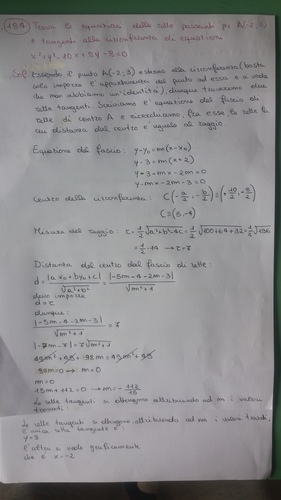 184 Trova le equazioni delle rette passanti per A(-2;3)
e tangenti alla circonferenza di equazione
x²+y²-10x+8y-8=0
Essendo il punto A(-2;3) esterno alla circonferenza (basta
imporre l'appartenenza del punto ad essa e si vede
che non abbiamo un'identità), dunque troveremo due
rette tangenti. Scriviamo l'equazione del fascio di
rette di centro A e ricerchiamo, fra esse, le rette la
cui distanza dal centro è uguale al raggio
Equazione del fascio: y-y₀=m(x-x₀)
y-3=m(x+2)
y-3=mx-2m=0
y-mx-2m-3=0
Centro della circonferenza: C(-a/2, -b/2)=(+10/2, -8/2)
C=(5,-4)
Misura del raggio: r=1/2√a²+b²-4c=1/2√100+64+32=1/2√196
=1/2·14→r=7
Distanza del centro dal fascio di rette:
d=|ax₀+by₀+c|/√a²+b²=|-5m-4-2m-3|/√m²+1
devo imporre
d=r
dunque:
|-5m-4-2m-3|/√m²+1=7
|-7m-7|=7√m²+1
49m²+49+98m=49m²+49
98m=0→m=0
m=0
15m+112=0→m=-112/15
Le rette tangenti si ottengono attribuendo ad m i valori
trovati.
Le rette tangenti si ottengono attribuendo ad m i valori trovati.
L'unica retta tangente è:
y=3
l'altra si vede graficamente
che è x=-2